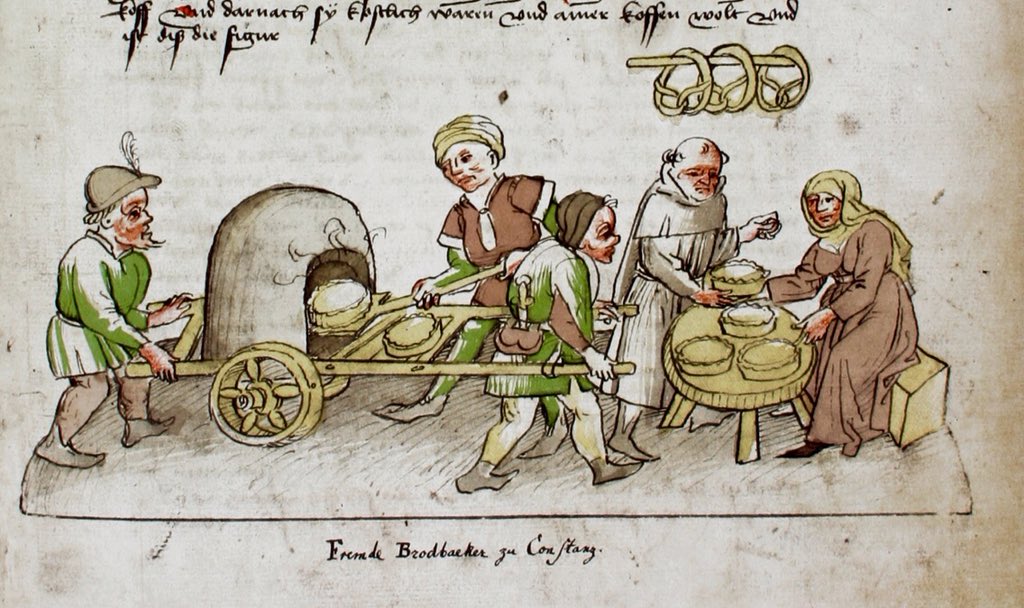 koff vnd darnach sy kostlich waren vnd ainer koffen wolt vnd
ist diß die figur
Fremde Brodbaeker zu Constanz.